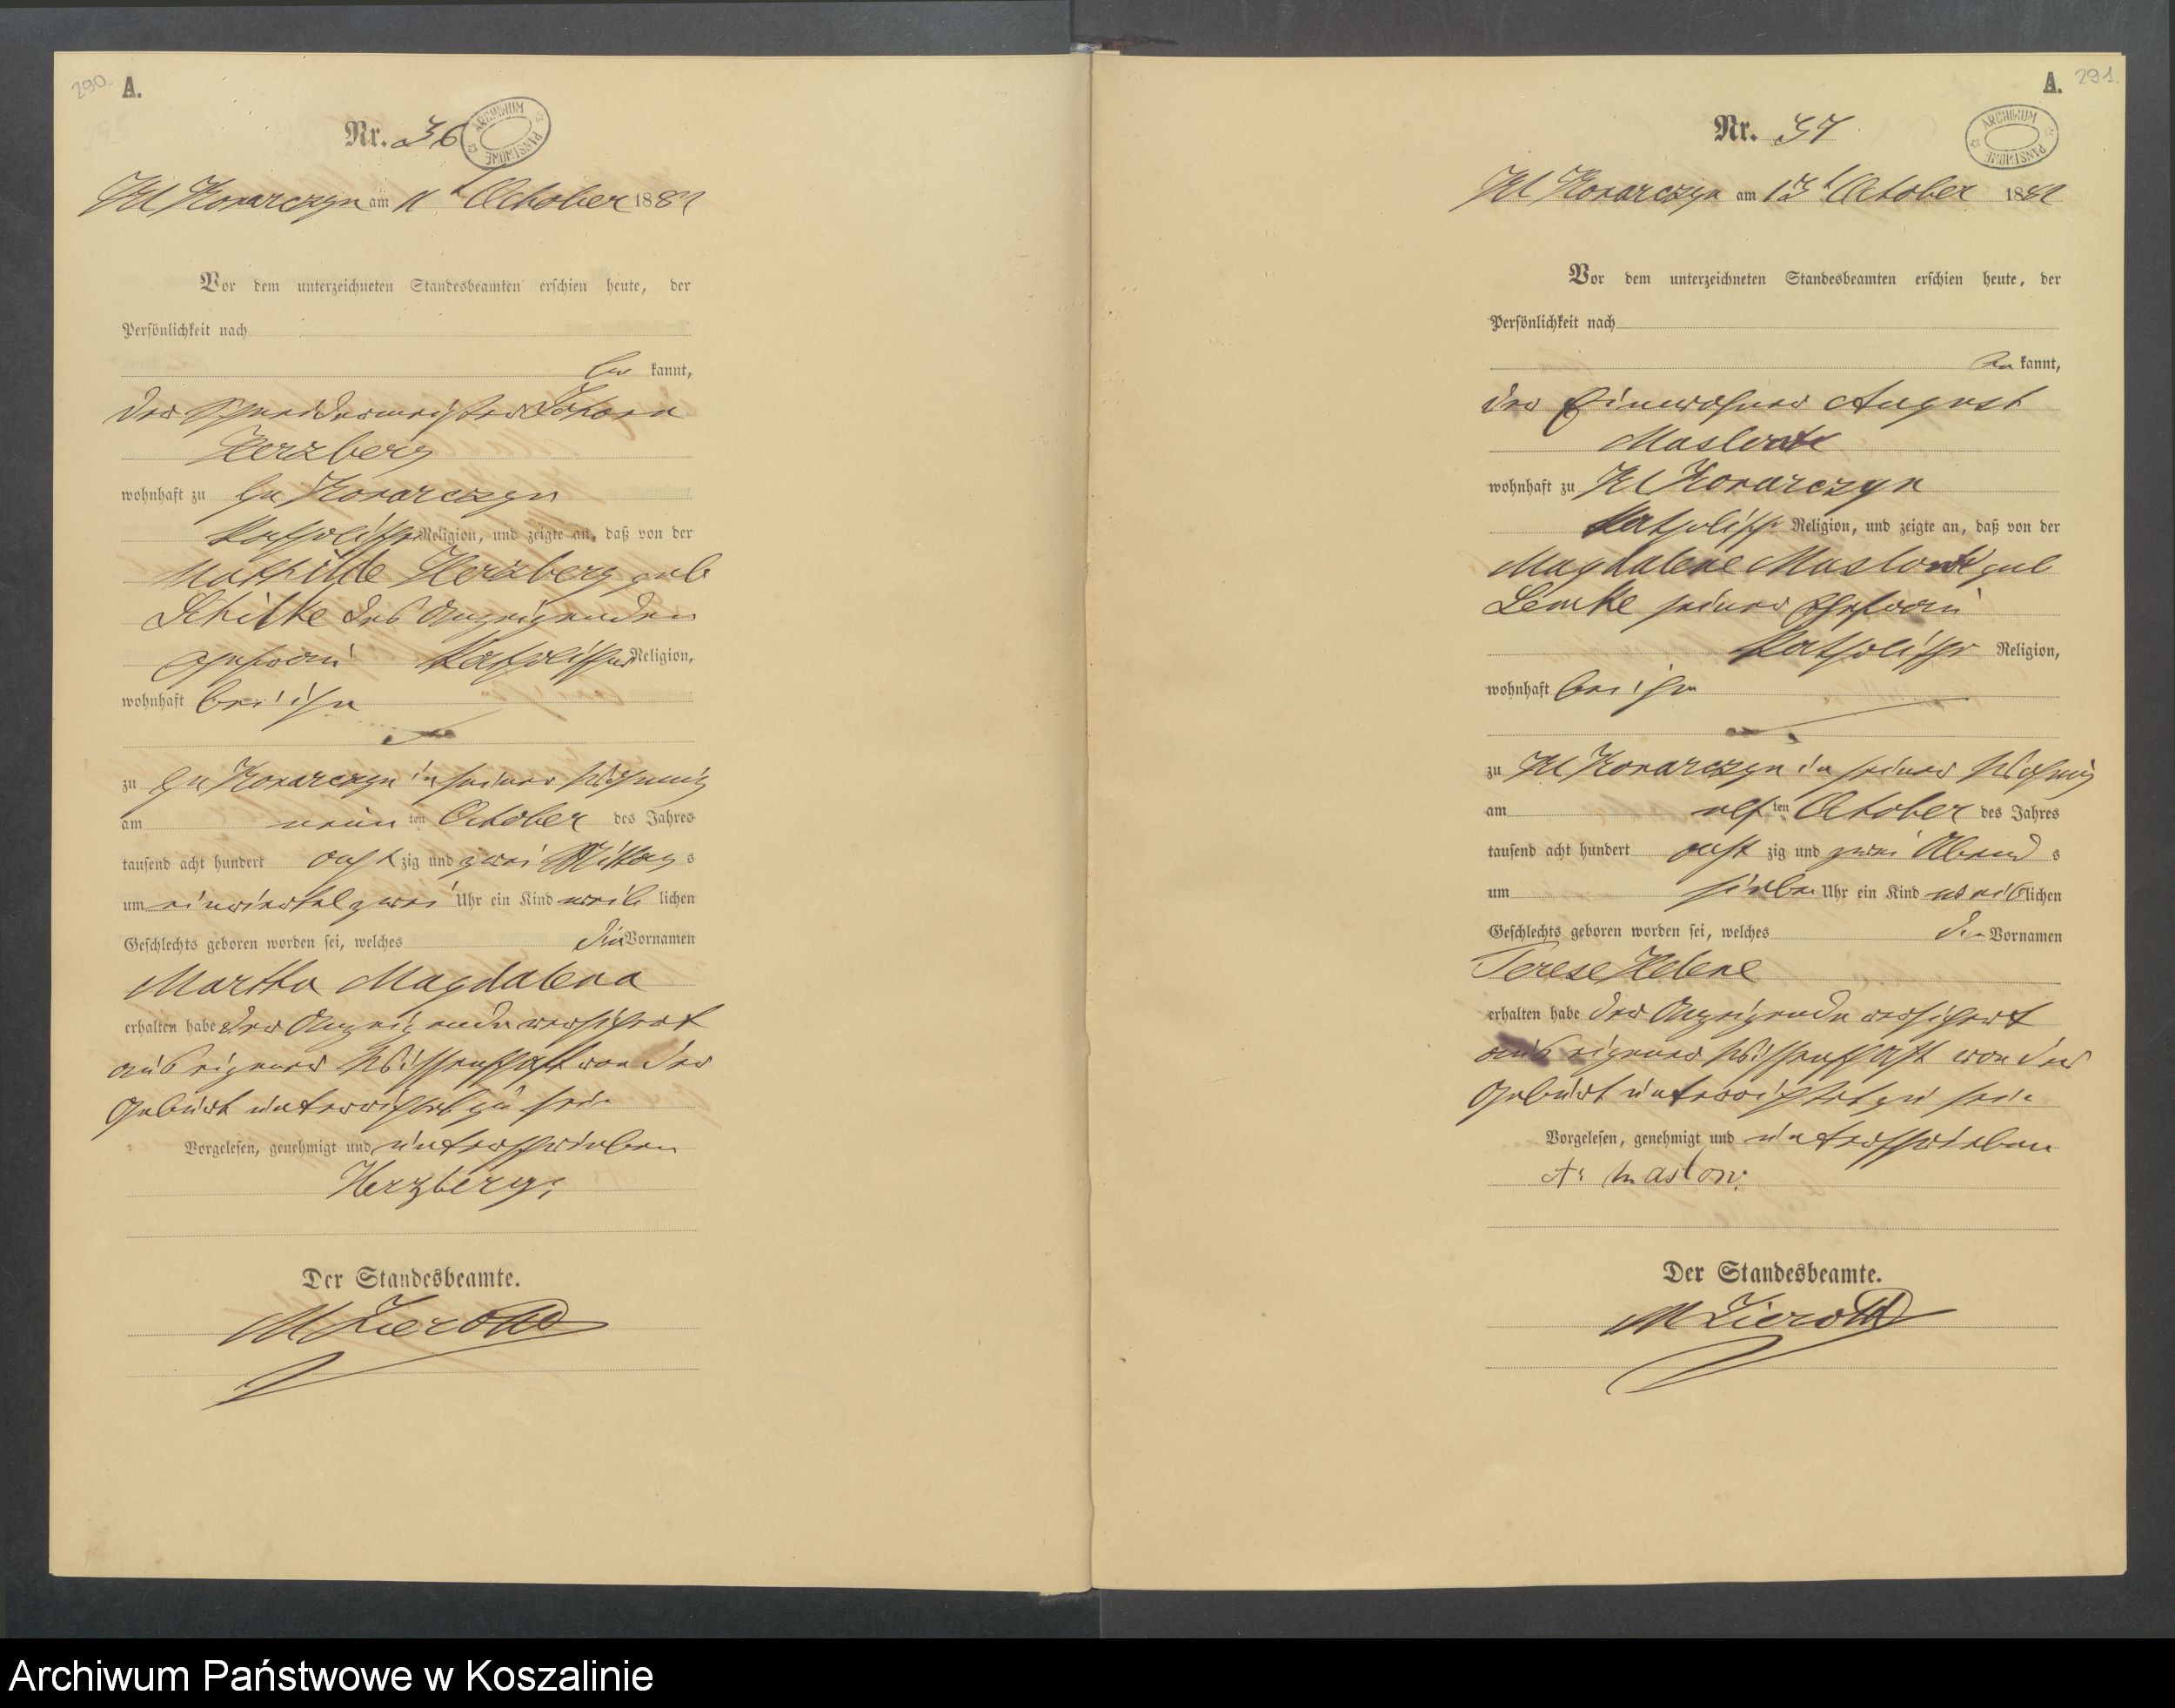 290.
A.
Nr. 36
ARCHIWUM PAŃSTWOWE
Kl Konarczyn am 11t October 1882
Vor dem unterzeichneten Standesbeamten erschien heute, der
Persönlichkeit nach
be kannt,
der Schneidermeister Johann
Herzberg
wohnhaft zu Gr Konarczyn
katholischer Religion, und zeigte an, daß von der
Mathilde Herzberg geb
Schilke des Anzeigenden
Ehefrau katholischer Religion,
wohnhaft bei ihm
zu Gr Konarczyn in seiner Wohnung
am neun ten October des Jahres
tausend acht hundert acht zig und zwei Mittag s
um einviertel zwei Uhr ein Kind weib lichen
Geschlechts geboren worden sei, welches die Vornamen
Martha Magdalena
erhalten habe der Anzeigende versichert
aus eigener Wissenschaft von der
Geburt unterrichtet zu sein
Vorgelesen, genehmigt und unterschrieben
Herzberg,
Der Standesbeamte.
M Zieroth
A. 291.
Nr. 37
ARCHIWUM PAŃSTWOWE
Kl Konarczyn am 13t October 1882
Vor dem unterzeichneten Standesbeamten erschien heute, der
Persönlichkeit nach
be kannt,
der Einwohner August
wohnhaft zu Kl Konarczyn
katholischer Religion, und zeigte an, daß von der
Magdalene geb
Lemke seiner Ehefrau
katholischer Religion,
wohnhaft bei ihm
zu Kl Konarczyn in seiner Wohnung
am elf ten October des Jahres
tausend acht hundert acht zig und zwei Abend s
um sieben Uhr ein Kind weiblichen
Geschlechts geboren worden sei, welches die Vornamen
Terese Helene
erhalten habe der Anzeigende versichert
aus eigener Wissenschaft von der
Geburt unterrichtet zu sein
Vorgelesen, genehmigt und unterschrieben
A. maslow.
Der Standesbeamte.
M Zieroth
Archiwum Państwowe w Koszalinie